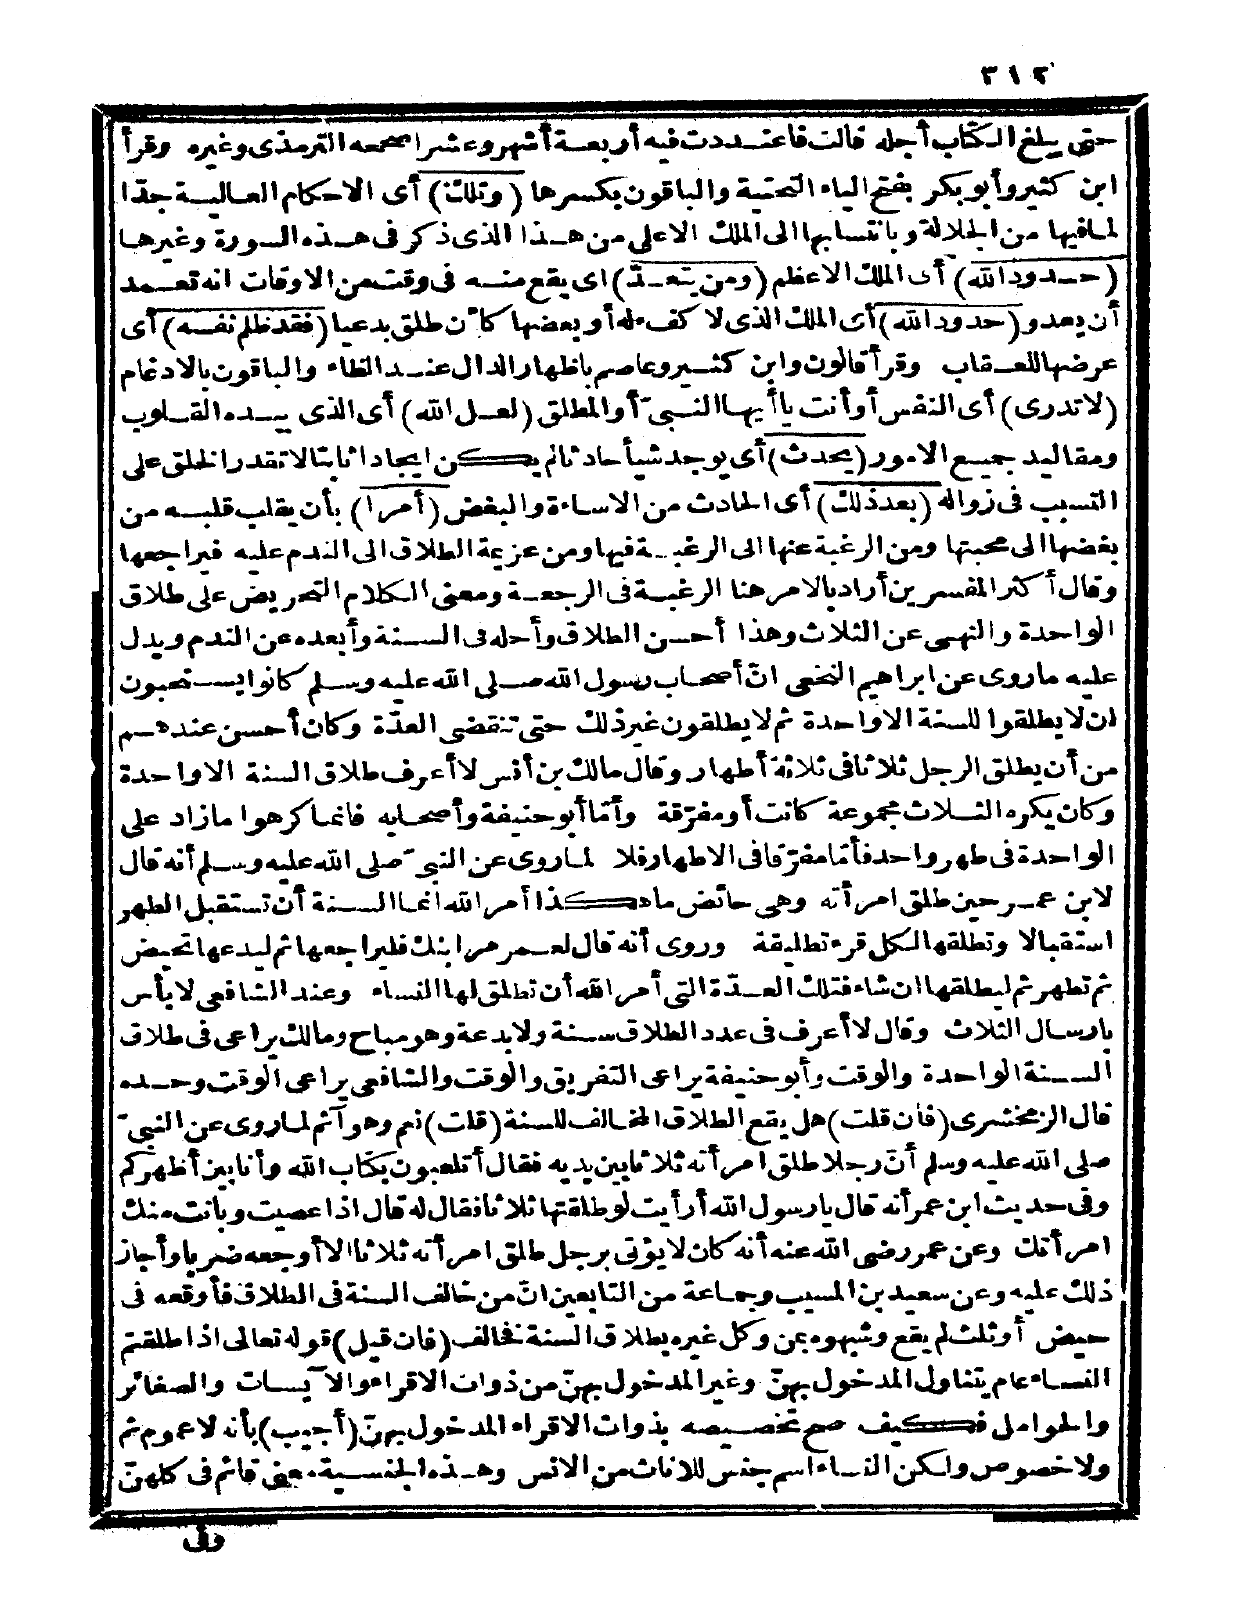 ٣١٢
حتى يبلغ الكتاب أجله قالت فاعتددت فيه أربعة أشهر وعشرا صححه الترمذى وغيره وقرأ
ابن كثير وأبو بكر بفتح الياء التحتية والباقون بكسرها (وتلك) أى الاحكام العالية جدّا
لما فيها من الجلالة وبانتسابها الى الملك الاعلى من هذا الذى ذكر فى هذه السورة وغيرها
(حدود الله) أى الملك الاعظم (ومن يتعدّ) اى يقع منه فى وقت من الاوقات انه تعمد
أن يعدو (حدود الله) أى الملك الذى لا كفء له أو بعضها كأن طلق بدعيا (فقد ظلم نفسه) أى
عرضها للعقاب وقرأ قالون وابن كثير وعاصم باظهار الدال عند الظاء والباقون بالادغام
(لا تدرى) أى النفس أو أنت يا أيها النبىّ أو المطلق (لعل الله) أى الذى بيده القلوب
ومقاليد جميع الامور (يحدث) أى يوجد شيأ حادثا لم يكن ايجادا ثابتا لا تقدر الخلق على
التسبب فى زواله (بعد ذلك) أى الحادث من الاساءة والبغض (أمرا) بأن يقلب قلبه من
بغضها الى محبتها ومن الرغبة عنها الى الرغبة فيها ومن عزيمة الطلاق الى الندم عليه فيراجعها
وقال أكثر المفسرين أراد بالامر هنا الرغبة فى الرجعة ومعنى الكلام التحريض على طلاق
الواحدة والنهى عن الثلاث وهذا أحسن الطلاق وأحله فى السنة وأبعده عن الندم ويدل
عليه ما روى عن ابراهيم النخعى انّ أصحاب رسول الله صلى الله عليه وسلم كانوا يستحبون
ان لا يطلقوا للسنة الا واحدة ثم لا يطلقون غير ذلك حتى تنقضى العدّة وكان أحسن عندهم
من أن يطلق الرجل ثلاثا فى ثلاثة أطهار وقال مالك بن أنس لا أعرف طلاق السنة الا واحدة
وكان يكره الثلاث مجموعة كانت أو مفرّقة وأمّا أبو حنيفة وأصحابه فانما كرهوا ما زاد على
الواحدة فى طهر واحد فأمّا مفرّقا فى الاطهار فلا لما روى عن النبىّ صلى الله عليه وسلم أنه قال
لابن عمر حين طلق امرأته وهى حائض ما هكذا أمر الله انما السنة أن تستقبل الطهر
استقبالا وتطلقها لكل قرء تطليقة وروى أنه قال لعمر مر ابنك فليراجعها ثم ليدعها تحيض
ثم تطهر ثم ليطلقها ان شاء فتلك العدّة التى أمر الله أن تطلق لها النساء وعند الشافعى لا بأس
بارسال الثلاث وقال لا أعرف فى عدد الطلاق سنة ولا بدعة وهو مباح ومالك يراعى فى طلاق
السنة الواحدة والوقت وأبو حنيفة يراعى التفريق والوقت والشافعى يراعى الوقت وحده
قال الزمخشرى (فان قلت) هل يقع الطلاق المخالف للسنة (قلت) نعم وهو آثم لما روى عن النبىّ
صلى الله عليه وسلم أنّ رجلا طلق امرأته ثلاثا بين يديه فقال أتلعبون بكتاب الله وأنا بين أظهركم
وفى حديث ابن عمر أنه قال يا رسول الله أرأيت لو طلقتها ثلاثا فقال له قال اذا عصيت وبانت منك
امرأتك وعن عمر رضى الله عنه أنه كان لا يؤتى برجل طلق امرأته ثلاثا الا أوجعه ضربا وأجاز
ذلك عليه وعن سعيد بن المسيب وجماعة من التابعين انّ من خالف السنة فى الطلاق فأوقعه فى
حيض أو ثلث لم يقع وشبهوه بمن وكل غيره بطلاق السنة فخالف (فان قيل) قوله تعالى اذا طلقتم
النساء عام يتناول المدخول بهنّ وغير المدخول بهنّ من ذوات الاقراء والآيسات والصغائر
والحوامل فكيف صح تخصيصه بذوات الاقراء المدخول بهنّ (أجيب) بأنه لا عموم ثم
ولا خصوص ولكن النساء اسم جنس للاناث من الانس وهذه الجنسية معنى قائم فى كلهنّ
وفى